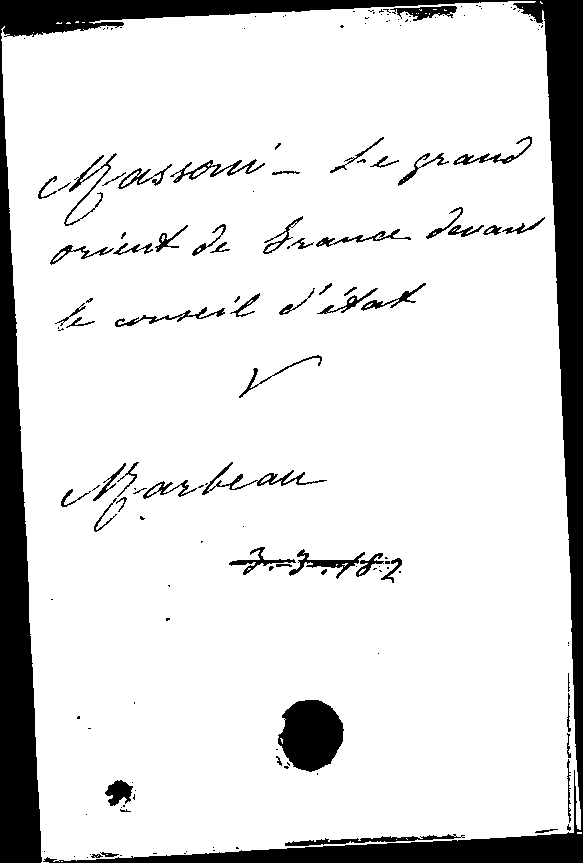 Massoni - Le grand
orient de France devant
le conseil d'état
V
Marbeau
3.3.182